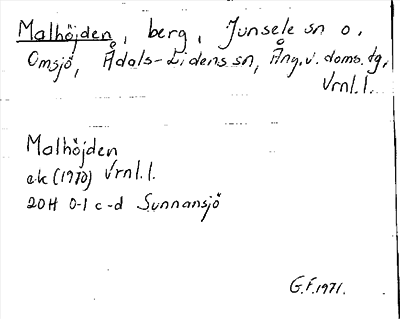 Malhöjden, berg, Junsele sn o.
Omsjö, Ådals-Lidens sn, Ång. v. doms. tg,
Vrnl. l.
Malhöjden
ek (1970) Vrnl. l.
20H 0-1 c-d Sunnansjö
G.F. 1971.